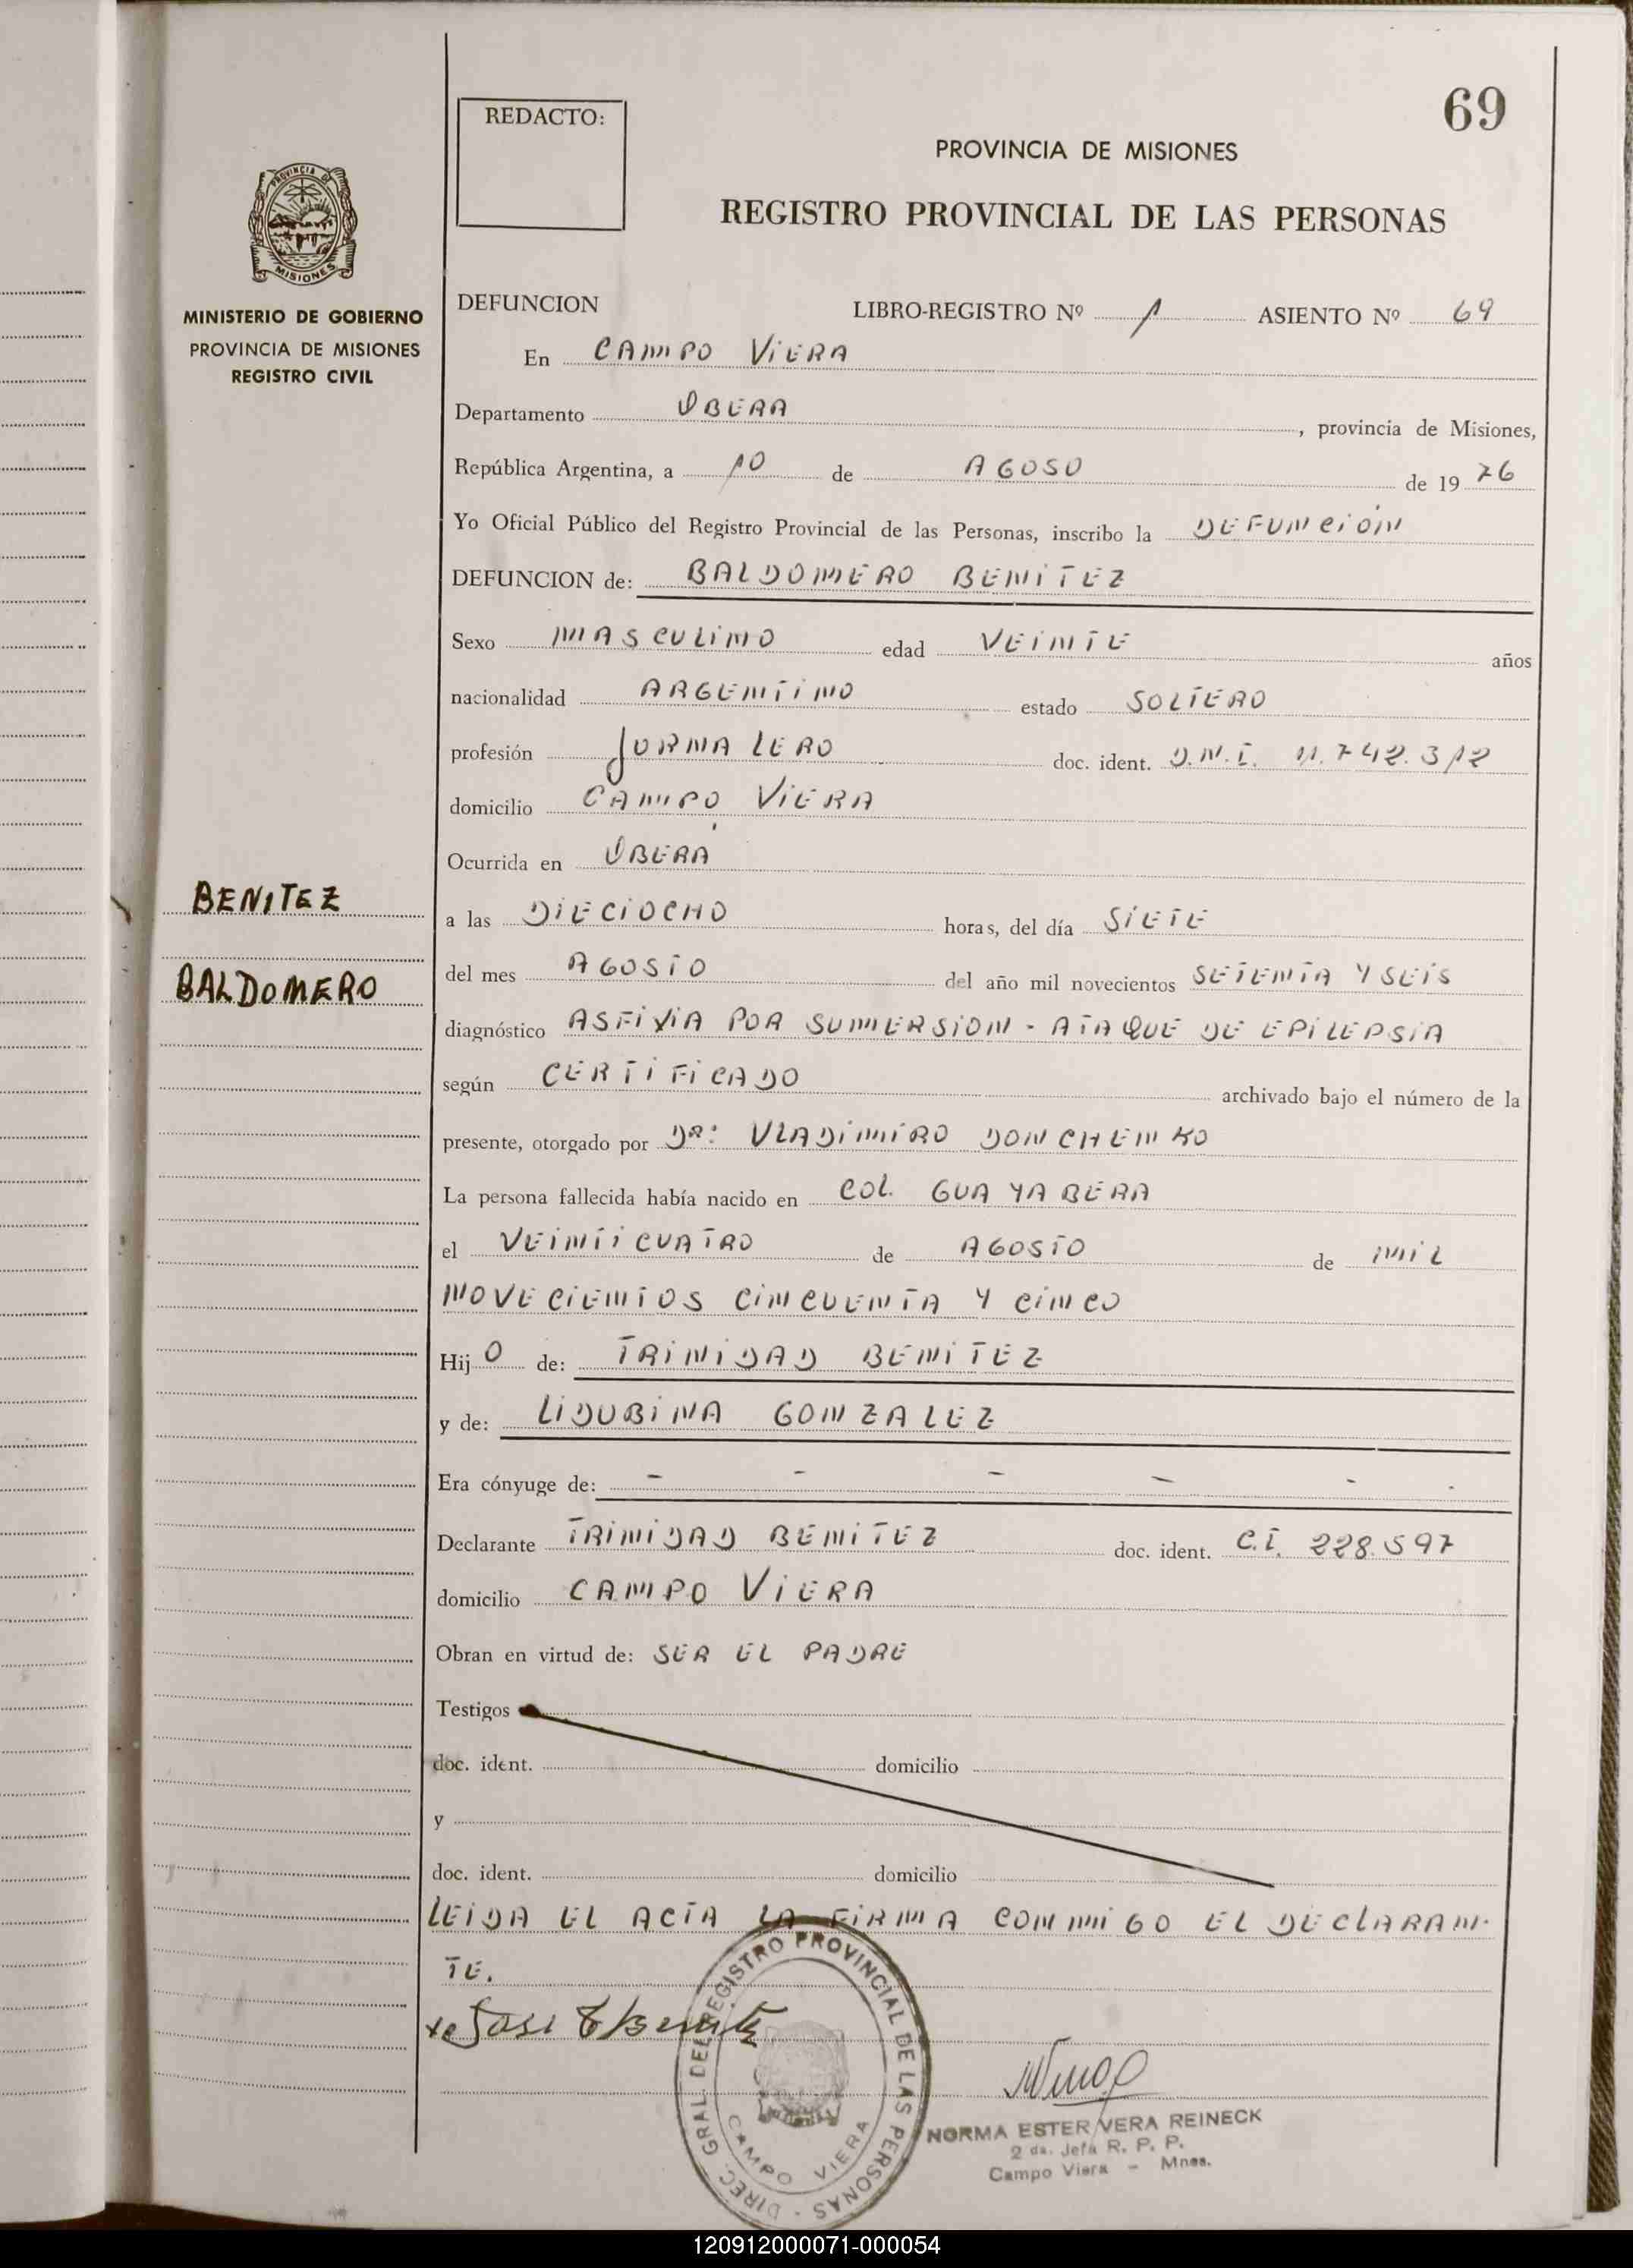 69
REDACTO:
PROVINCIA DE MISIONES
REGISTRO PROVINCIAL DE LAS PERSONAS
PROVINCIA DE
MISIONES
MINISTERIO DE GOBIERNO
PROVINCIA DE MISIONES
REGISTRO CIVIL
DEFUNCION LIBRO-REGISTRO Nº 1 ASIENTO Nº 69
En CAMPO VIERA
Departamento OBERA, provincia de Misiones,
República Argentina, a 10 de AGOSO de 1976
Yo Oficial Público del Registro Provincial de las Personas, inscribo la DEFUNCIÓN
DEFUNCION de: BALDOMERO BENITEZ
Sexo MASCULINO edad VEINTE años
nacionalidad ARGENTINO estado SOLTERO
profesión JORNALERO doc. ident. D.N.I. 11.742.312
domicilio CAMPO VIERA
Ocurrida en OBERÁ
BENITEZ
a las DIECIOCHO horas, del día SIETE
BALDOMERO
del mes AGOSTO del año mil novecientos SETENTA Y SEIS
diagnóstico ASFIXIA POR SUMERSION - ATAQUE DE EPILEPSIA
según CERTIFICADO archivado bajo el número de la
presente, otorgado por DR: VLADIMIRO DONCHENKO
La persona fallecida había nacido en COL. GUAYABERA
el VEINTICUATRO de AGOSTO de MIL
NOVECIENTOS CINCUENTA Y CINCO
Hijo de: TRINIDAD BENITEZ
y de: LIDUBINA GONZALEZ
Era cónyuge de: - - - - - -
Declarante TRINIDAD BENITEZ doc. ident. C.I. 228.597
domicilio CAMPO VIERA
Obran en virtud de: SER EL PADRE
Testigos
doc. ident. domicilio
y
doc. ident. domicilio
LEIDA EL ACTA LA FIRMA CONMIGO EL DECLARAN-
TE.
DIREC. GRAL. DEL REGISTRO PROVINCIAL DE LAS PERSONAS -
CAMPO VIERA
NORMA ESTER VERA REINECK
2 da. Jefa R. P. P.
Campo Viera - Mnes.
120912000071-000054